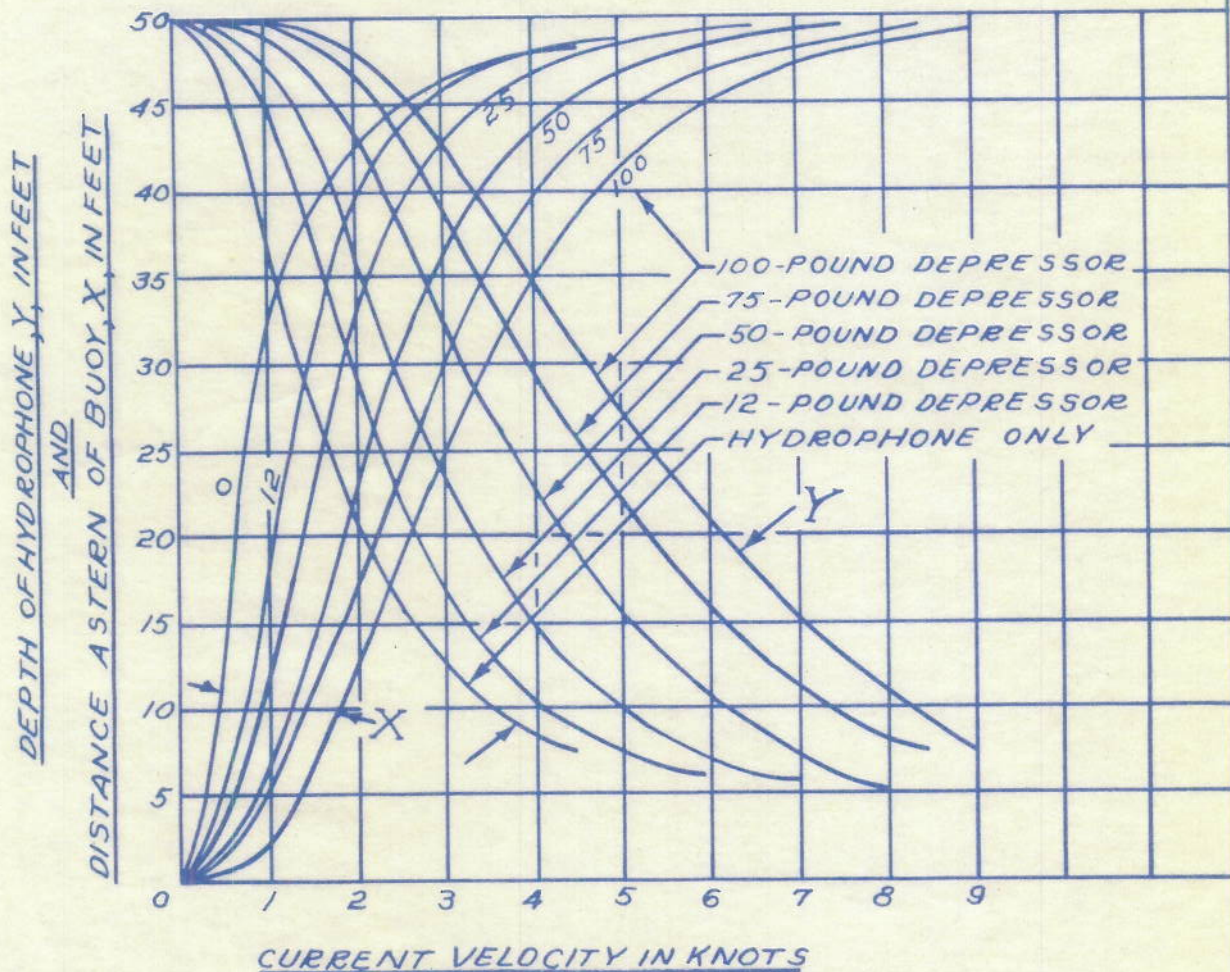 DEPTH OF HYDROPHONE, Y, IN FEET
AND
DISTANCE ASTERN OF BUOY, X, IN FEET
50
45
40
35
30
25
20
15
10
5
0
0
12
25
50
75
100
100-POUND DEPRESSOR
75-POUND DEPRESSOR
50-POUND DEPRESSOR
25-POUND DEPRESSOR
12-POUND DEPRESSOR
HYDROPHONE ONLY
Y
X
0 1 2 3 4 5 6 7 8 9
CURRENT VELOCITY IN KNOTS